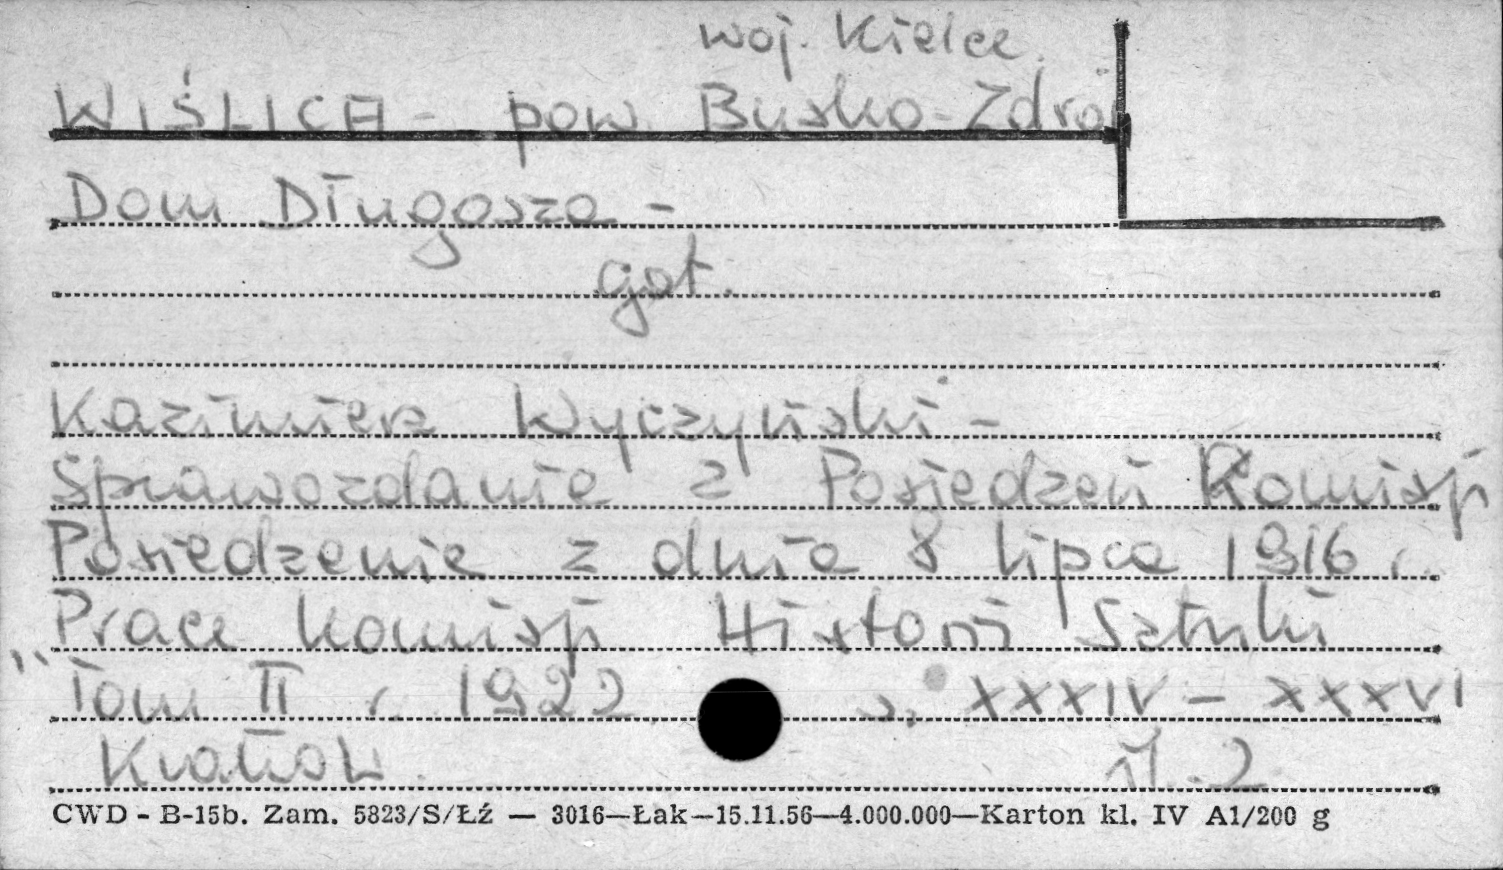 woj. Kielce.
WIŚLICA - pow. Busko-Zdrój
Dom Długosza -
got.
Kazimierz Wyczyński -
Sprawozdanie z Posiedzeń Komisji
Posiedzenie z dnia 8 lipca 1916 r.
Prace Komisji Historii Sztuki
"Tom II r. 1922 s. XXXIV - XXXVI
Kraków. il. 2
CWD - B-15b. Zam. 5823/S/Łź — 3016—Łak—15.11.56—4.000.000—Karton kl. IV A1/200 g